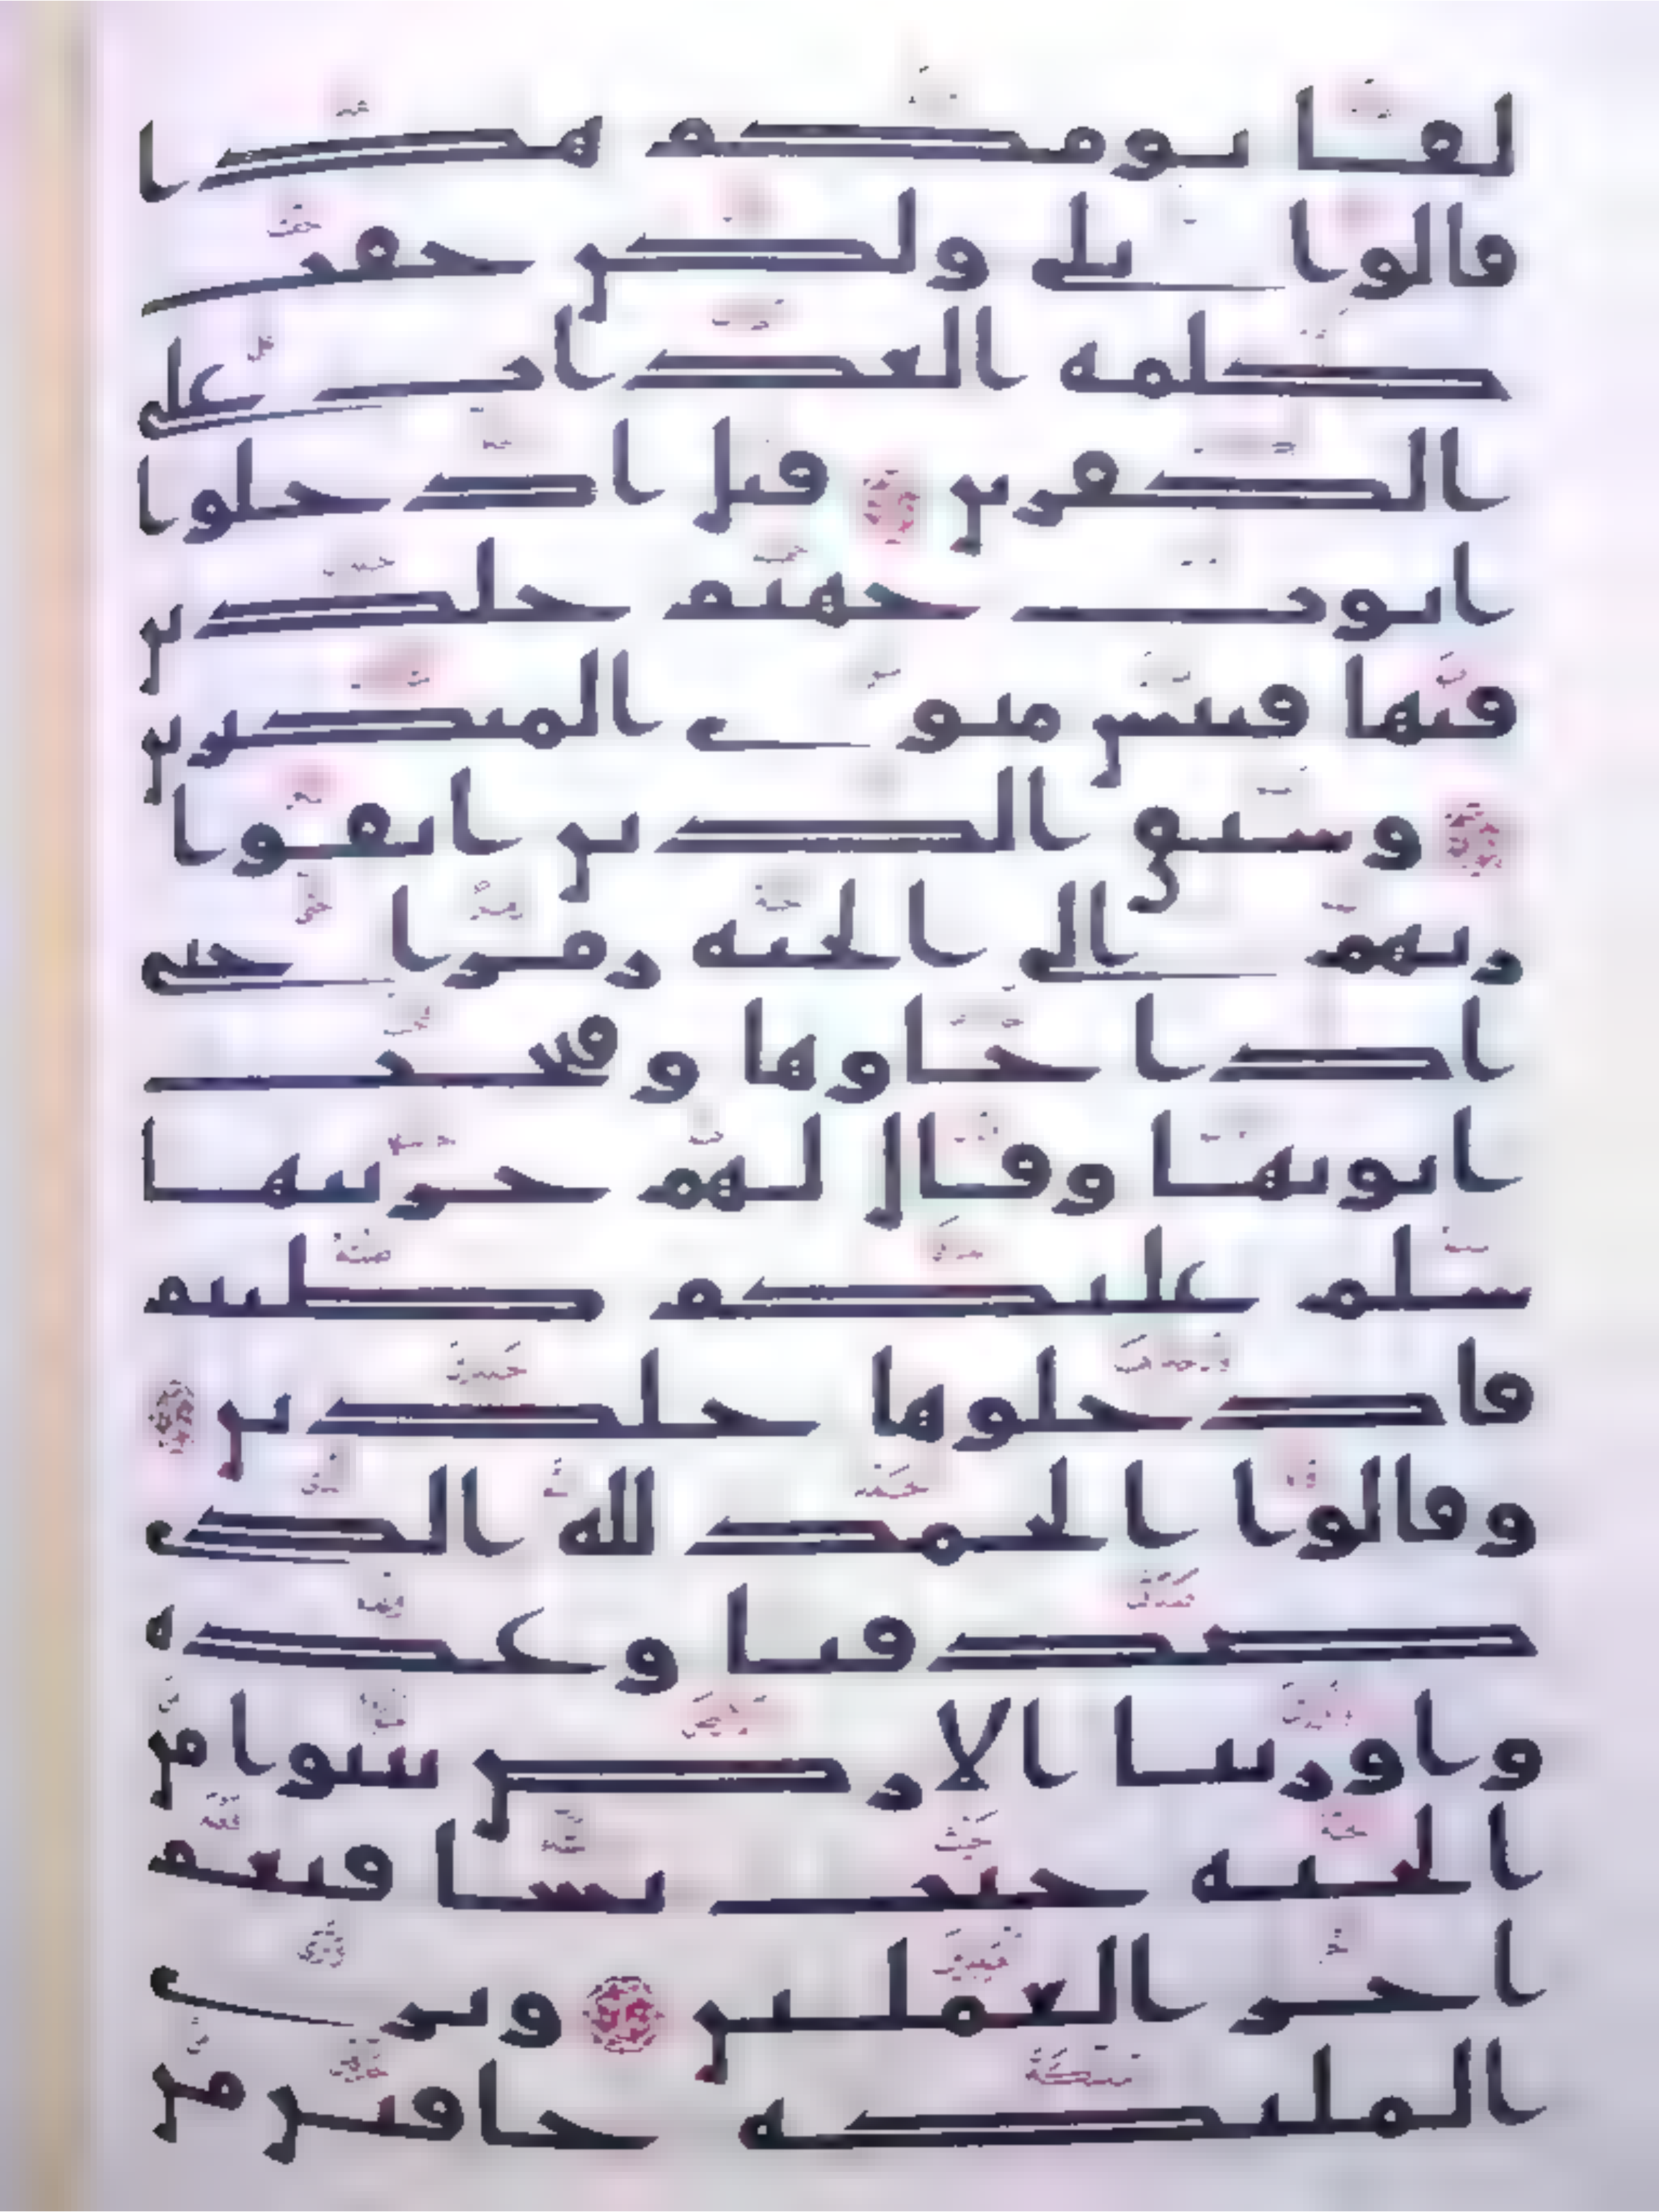 لقا يومكم هذا
قالوا بلى ولكن حقت
كلمة العذاب على
الكفرين قيل ادخلوا
ابوب جهنم خلدين
فيها فبئس مثوى المتكبرين
وسيق الذين اتقوا
ربهم الى الجنة زمرا حتى
اذا جاوها وفتحت
ابوبها وقال لهم خزنتها
سلم عليكم طبتم
فادخلوها خلدين
وقالوا الحمد لله الذي
صدقنا وعده
واورثنا الارض نتبوا من
الجنة حيث نشا فنعم
اجر العملين وترى
الملئكة حافين من